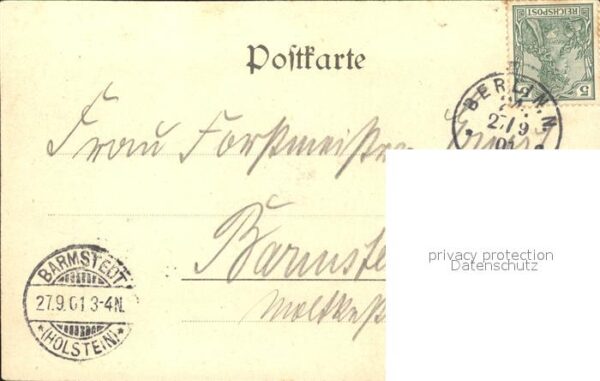 Postkarte
REICHSPOST
5
BERLIN. N.
27/9
01
Frau Forstmeister
Barmste
Moltkest
BARMSTEDT
27.9.01 3-4N.
*(HOLSTEIN)*
privacy protection
Datenschutz